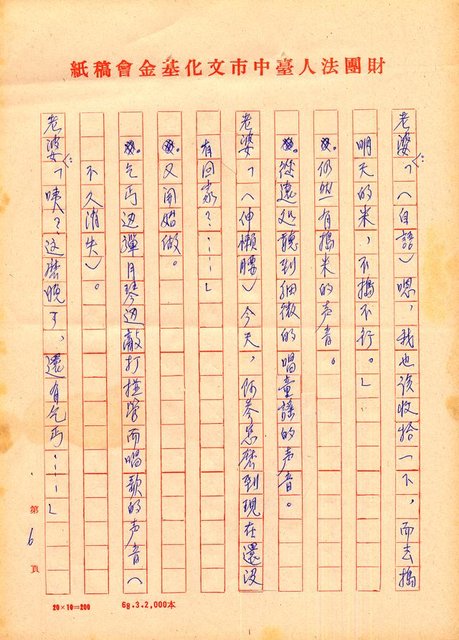 財團法人臺中市文化基金會稿紙
老婆：「（自語）嗯，我也该收拾一下，而去搗
明天的米，不搗不行。」
⊗。仍然有搗米的声音。
⊗。從遠処聽到細微的唱童謡的声音。
老婆「（伸懶腰）今天，阿参怎麽到現在還没
有回來？……」
⊗。又開始做。
⊗。乞丐边彈月琴边敲打 而唱歌的声音（
不久消失）。
老婆：「咦？这麽晚了，還有乞丐……」
第6頁
20×10=200
69.3.2,000本